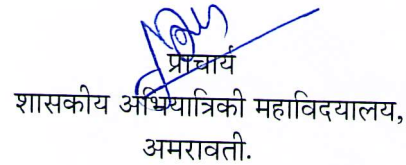 प्राचार्य
शासकीय अभियांत्रिकी महाविदयालय,
अमरावती.